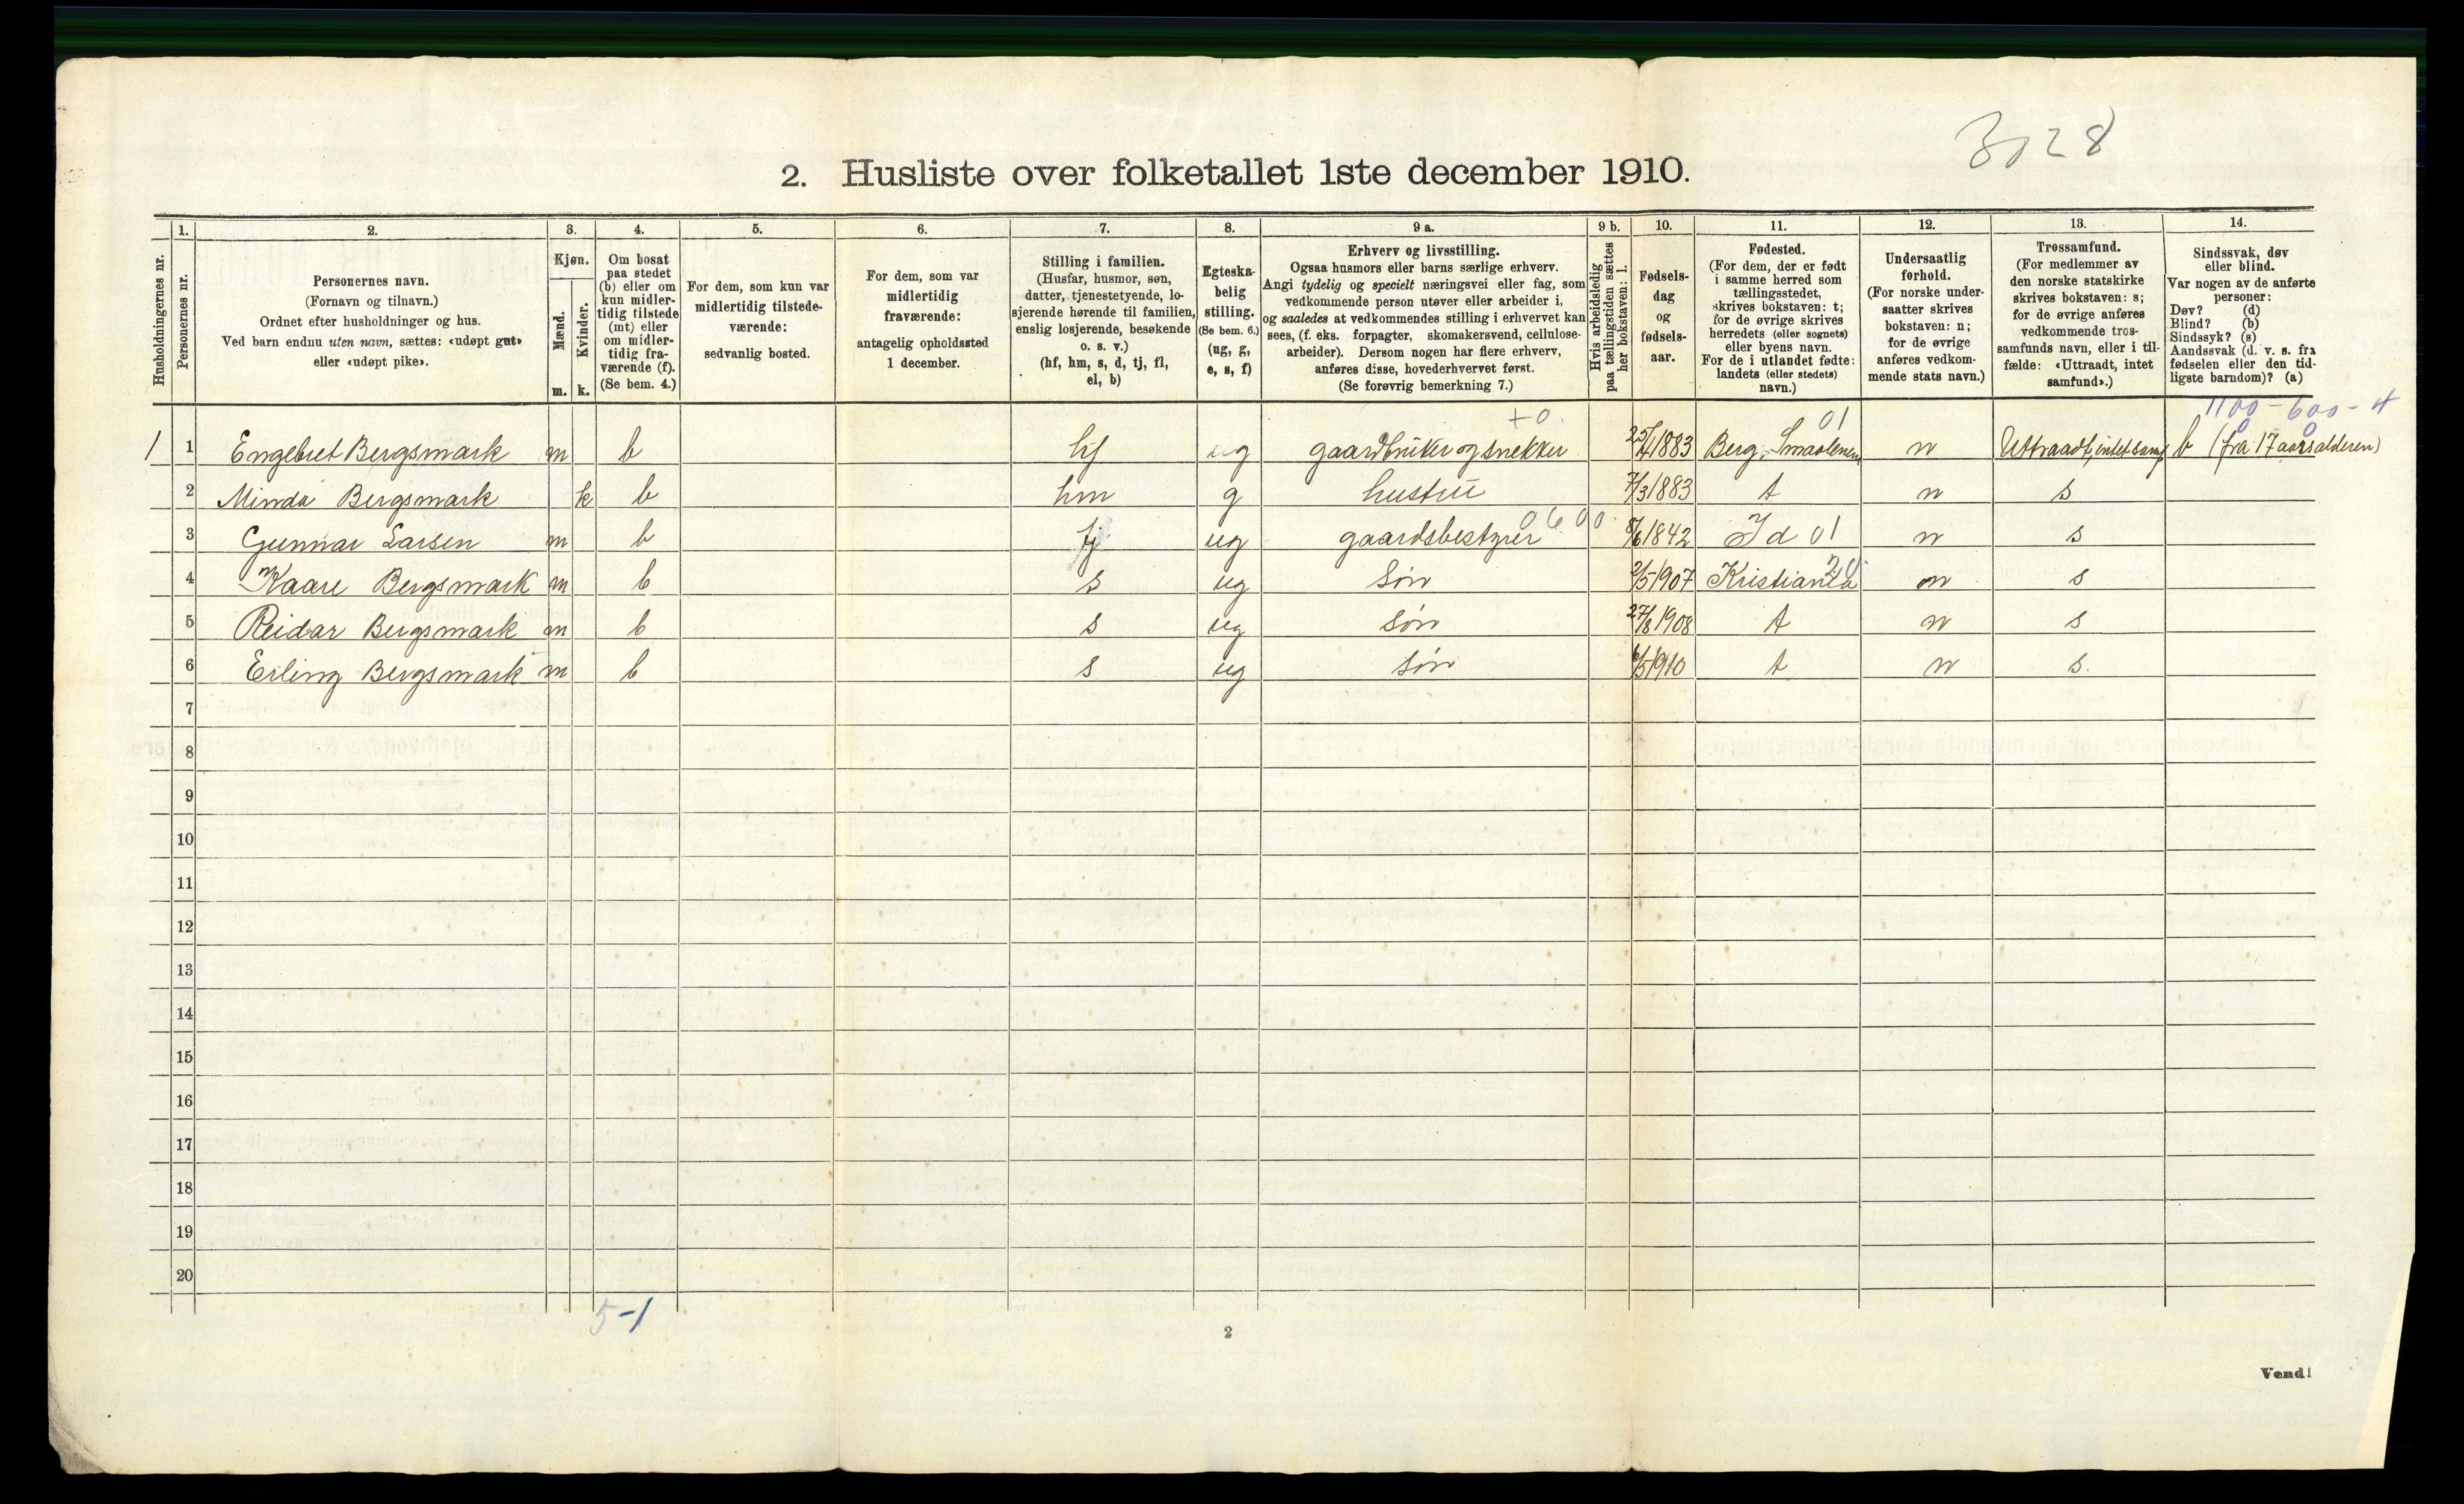 3028
2. Husliste over folketallet 1ste december 1910.
Husholdningernes nr.
1.
Personernes nr.
2.
Personernes navn.
(Fornavn og tilnavn.)
Ordnet efter husholdninger og hus.
Ved barn endnu uten navn, sættes: «udøpt gut»
eller «udøpt pike».
3.
Kjøn.
Mænd.
Kvinder.
m. k.
4.
Om bosat
paa stedet
(b) eller om
kun midler-
tidig tilstede
(mt) eller
om midler-
tidig fra-
værende (f).
(Se bem. 4.)
5.
For dem, som kun var
midlertidig tilstede-
værende:
sedvanlig bosted.
6.
For dem, som var
midlertidig
fraværende:
antagelig opholdssted
1 december.
7.
Stilling i familien.
(Husfar, husmor, søn,
datter, tjenestetyende, lo-
sjerende hørende til familien,
enslig losjerende, besøkende
o. s. v.)
(hf, hm, s, d, tj, fl,
el, b)
8.
Egteska-
belig
stilling.
(Se bem. 6.)
(ug, g,
e, s, f)
9 a.
Erhverv og livsstilling.
Ogsaa husmors eller barns særlige erhverv.
Angi tydelig og specielt næringsvei eller fag, som
vedkommende person utøver eller arbeider i,
og saaledes at vedkommendes stilling i erhvervet kan
sees, (f. eks. forpagter, skomakersvend, cellulose-
arbeider). Dersom nogen har flere erhverv,
anføres disse, hovederhvervet først.
(Se forøvrig bemerkning 7.)
9 b.
Hvis arbeidsledig
paa tællingstiden sættes
her bokstaven: l.
10.
Fødsels-
dag
og
fødsels-
aar.
11.
Fødested.
(For dem, der er født
i samme herred som
tællingsstedet,
skrives bokstaven: t;
for de øvrige skrives
herredets (eller sognets)
eller byens navn.
For de i utlandet fødte:
landets (eller stedets)
navn.)
12.
Undersaatlig
forhold.
(For norske under-
saatter skrives
bokstaven: n;
for de øvrige
anføres vedkom-
mende stats navn.)
13.
Trossamfund.
(For medlemmer av
den norske statskirke
skrives bokstaven: s;
for de øvrige anføres
vedkommende tros-
samfunds navn, eller i til-
fælde: «Uttraadt, intet
samfund».)
14.
Sindssvak, døv
eller blind.
Var nogen av de anførte
personer:
Døv? (d)
Blind? (b)
Sindssyk? (s)
Aandssvak (d. v. s. fra
fødselen eller den tid-
ligste barndom)? (a)
+0. 01 1100-600-4
1 1 Engebret Bergsmark m b hf ug gaardbruker og snekker 25/4 1883 Berg, Smaalenene n Uttraadt, intet samf b (fra 17 aarsalderen)
2 Minda Bergsmark k b hm g hustru 7/3 1883 t n s
3 Gunnar Larsen m b tj ug gaardsbestyrer 0600 8/6 1842 Id 01 n s
4 Kaare Bergsmark m b s ug søn 2/5 1907 Kristiania n s
5 Reidar Bergsmark m b s ug søn 27/8 1908 t n s
6 Erling Bergsmark m b s ug søn 6/5 1910 t n s.
7
8
9
10
11
12
13
14
15
16
17
18
19
20
5-1
2
Vend!